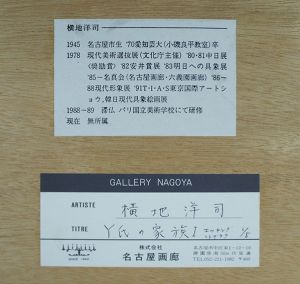 横地洋司
1945 名古屋市生 '70愛知芸大(小磯良平教室)卒
1978 現代美術選抜展(文化庁主催) '80・81中日展
〈奨励賞〉 '82安井賞展 '83明日への具象展
'85〜名真会(名古屋画廊・六義園画廊) '86〜
88現代形象展 '91T・I・A・S東京国際アートショ
ウ,韓日現代具象絵画展
1988−89 滞仏 パリ国立美術学校にて研修
現在 無所属
GALLERY NAGOYA
ARTISTE 横地洋司
TITRE Y氏の家族I
SINCE
株式会社
名古屋画廊